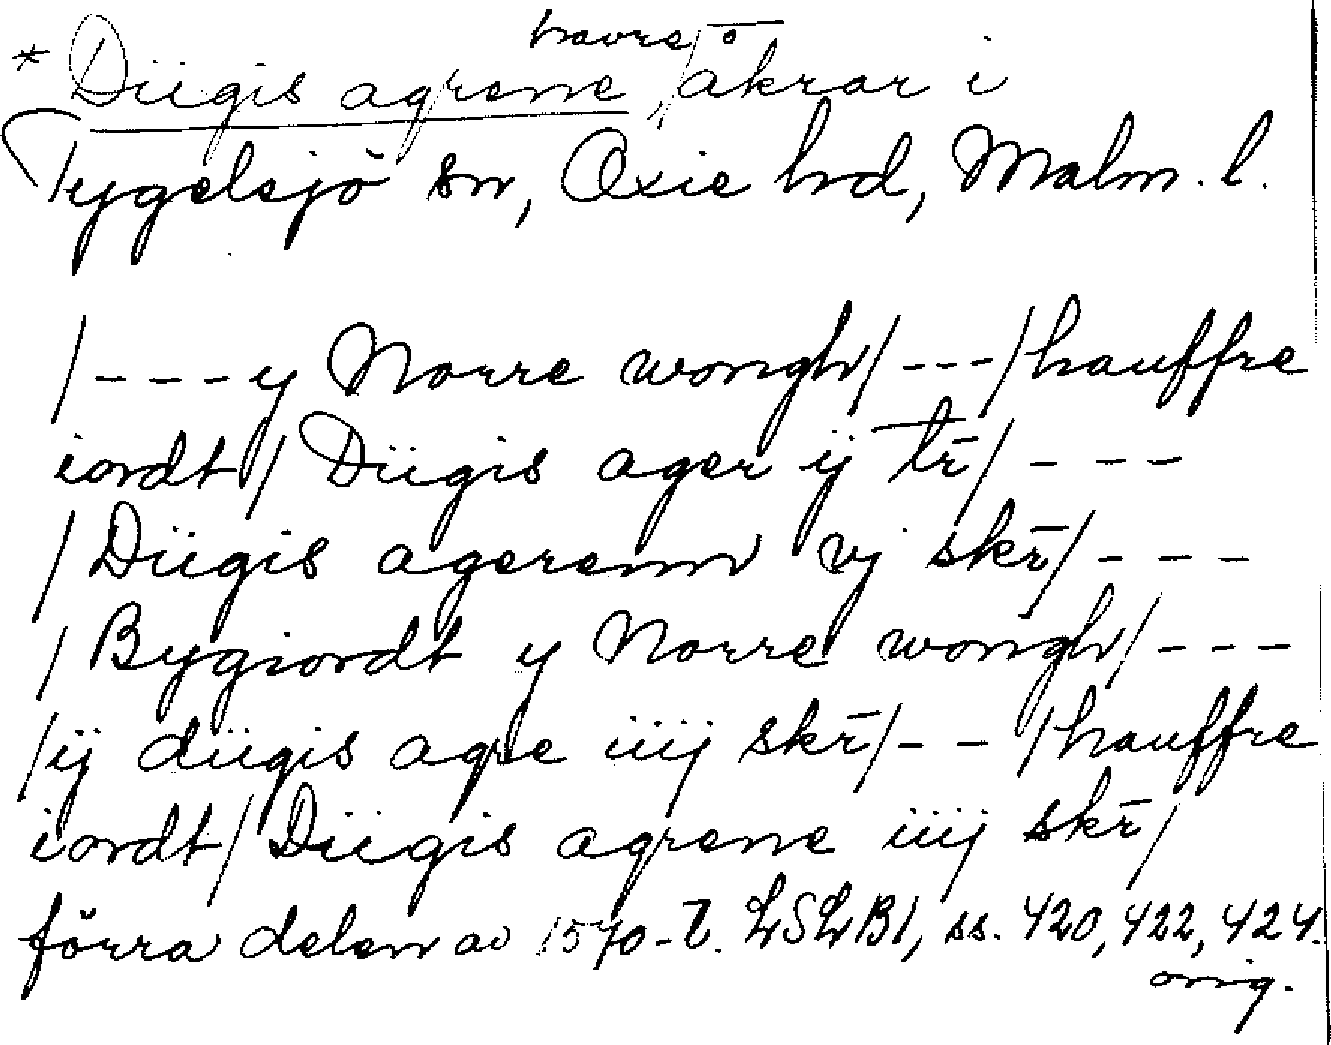 havre
* Dügis agrene, åkrar i
Tygelsjö sn, Oxie hrd, Malm. l.
/---y Norre wongh/---/hauffre
iordt/Dügis ager ij tr̄/---
/Dügis agerenn vj skr̄/---
/Bygiordt y Norre wongh/---
/ij dügis agre iiij skr̄/--/hauffre
iordt/Dügis agrene iiij skr̄/
förra delen av 1570-t. LSLB1, ss. 420, 422, 424.
orig.